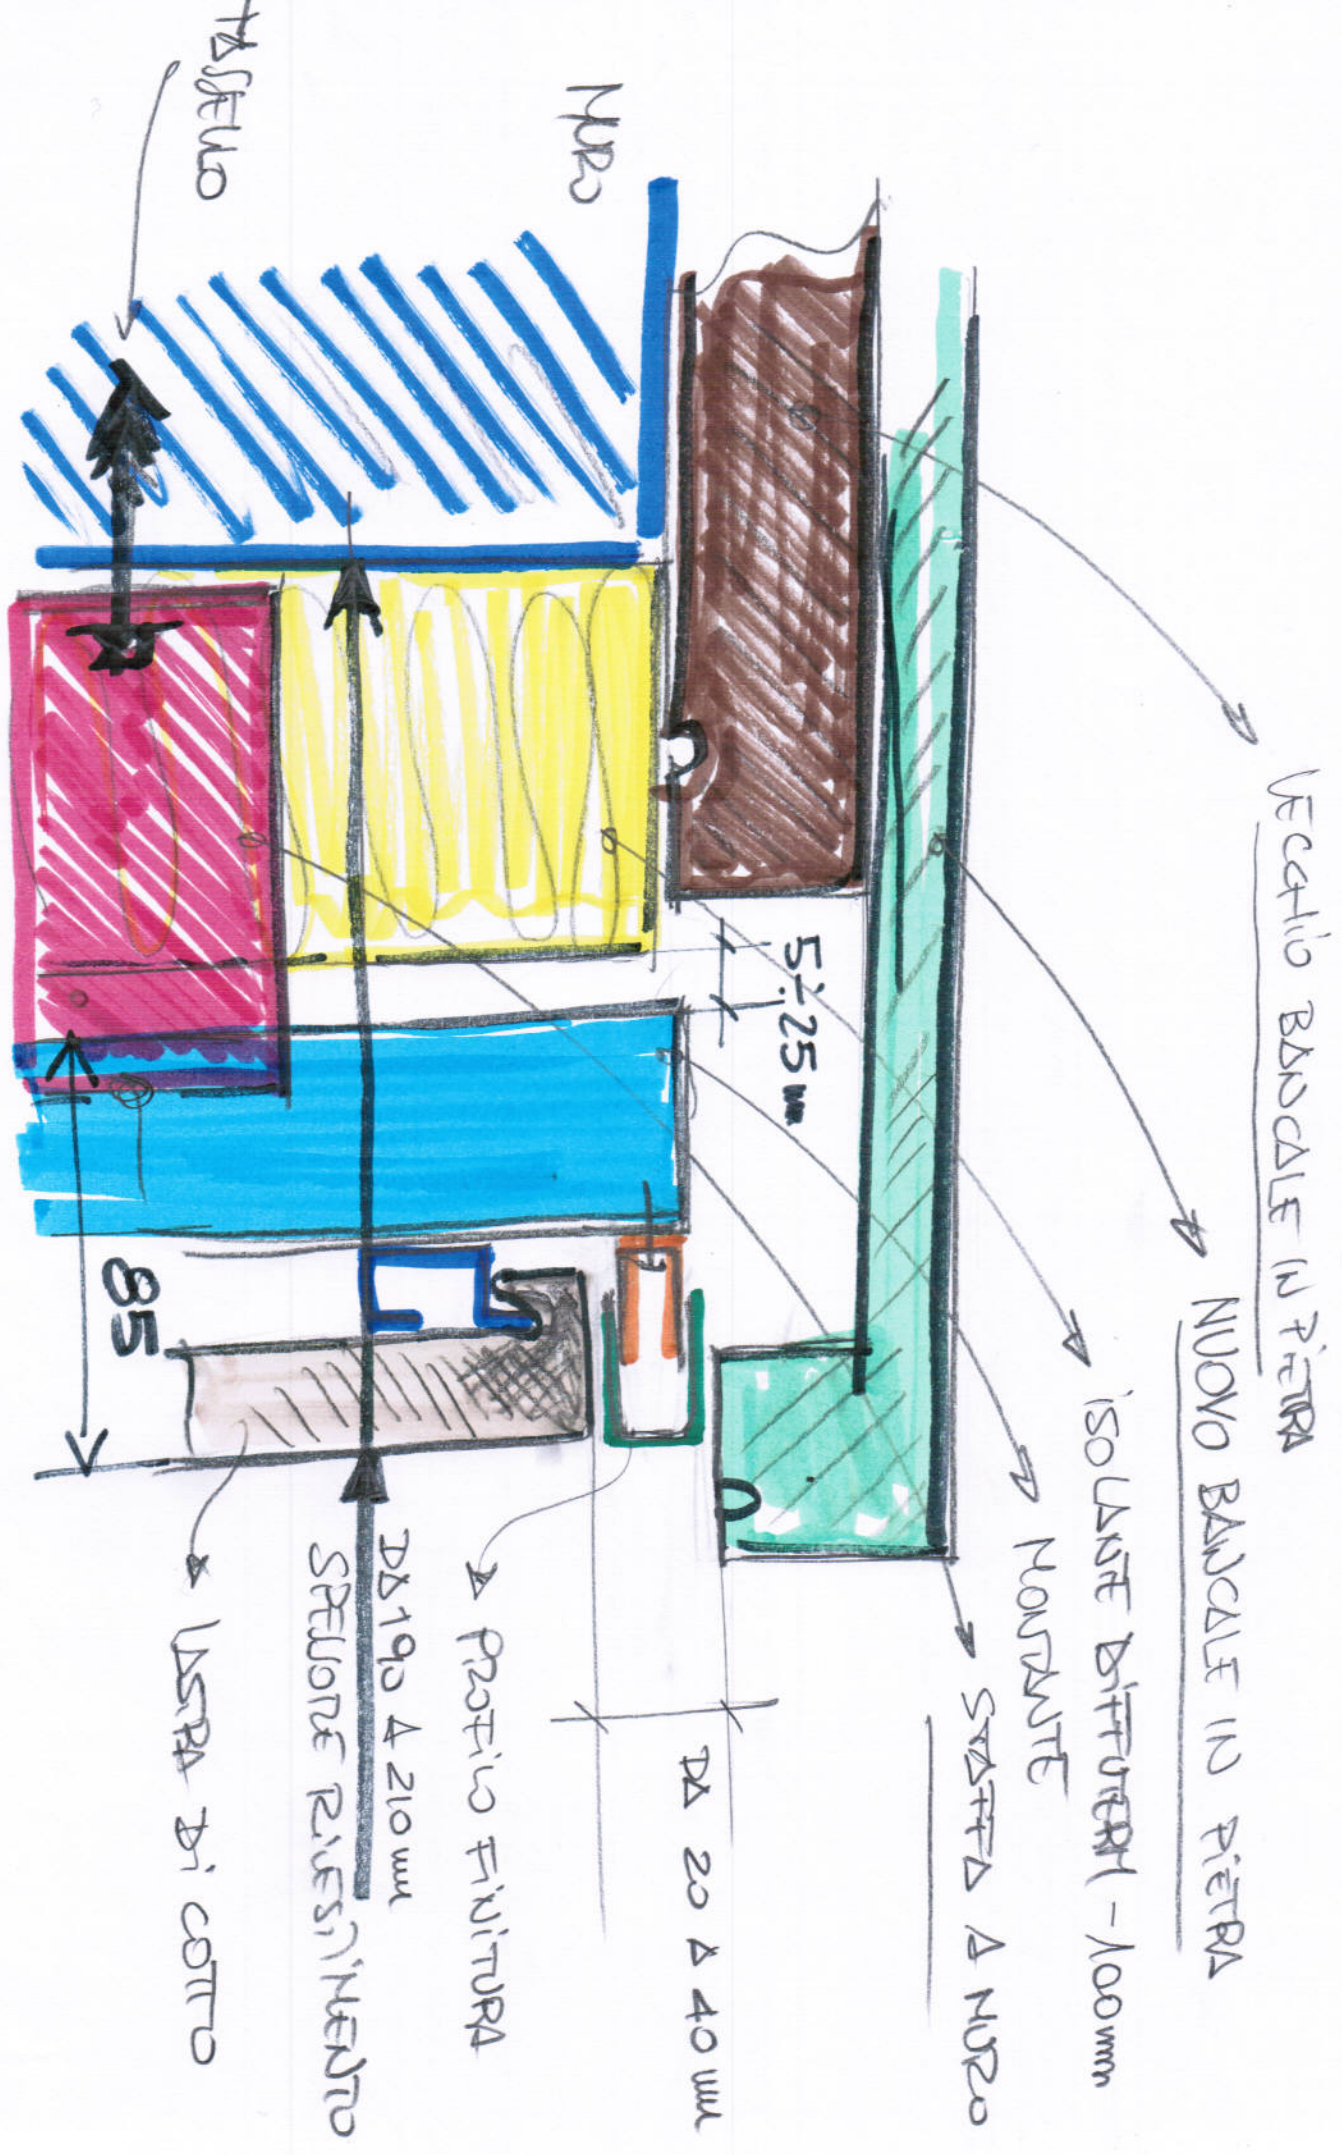 VECCHIO BANCALE IN PIETRA
NUOVO BANCALE IN PIETRA
ISOLANTE DIFFUTERM - 100mm
MONTANTE
STAFFA A MURO
DA 20 A 40 mm
PROFILO FINITURA
DA 190 A 210 mm
SPESSORE RIVESTIMENTO
LASTRA DI COTTO
5÷25 mm
85
MURO
TASSELLO